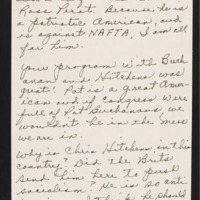 Ross Perot. Because he is
a patriotic American, and
is against NAFTA, I am all
for him.
Your program with Buch
anan and Hitchens was
great! Pat is a great Am-
erican and if Congress were
full of Pat Buchanans we
wouldn't be in the mess
we are in.
Why is Chris Hitchens in this
country? Did the Brits
send him here to push
socialism? He is so anti
think he should